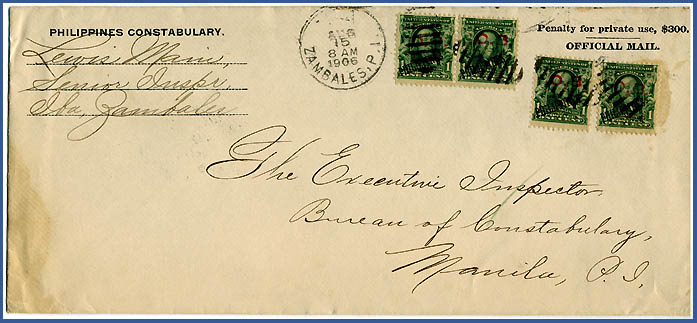 PHILIPPINES CONSTABULARY.
Lewis
Senior Inspr,
Iba, Zambales
AUG
15
8 AM
1906
ZAMBALES, P.I.
Penalty for private use, $300.
OFFICIAL MAIL.
The Executive Inspector
Bureau of Constabulary,
Manila, P.I.